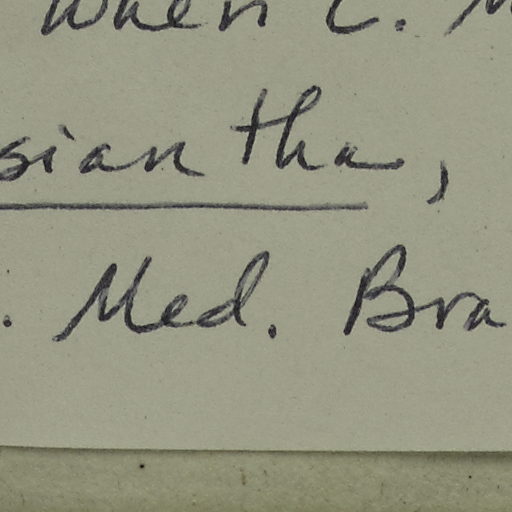 when C.
siantha,
. Med. Bra